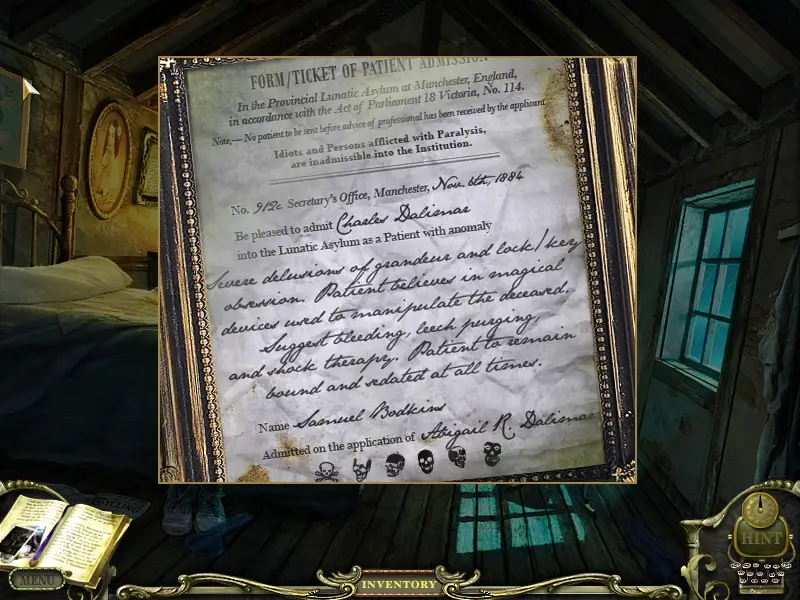 FORM/TICKET OF PATIENT ADMISSION
In the Provincial Lunatic Asylum at Manchester, England,
in accordance with the Act of Parliament 18 Victoria, No. 114.
Note,— No patient to be sent before advice of professional has been received by the applicant.
Idiots and Persons afflicted with Paralysis,
are inadmissible into the Institution.
No. 912c Secretary's Office, Manchester, Nov. 6th, 1884
Be pleased to admit Charles Dalimar
into the Lunatic Asylum as a Patient with anomaly
Severe delusions of grandeur and lock/key
obsession. Patient believes in magical
devices used to manipulate the deceased.
Suggest bleeding, leech purging,
and shock therapy. Patient to remain
bound and sedated at all times.
Name Samuel Bodkins
Admitted on the application of Abigail R. Dalimar
MENU
INVENTORY
HINT